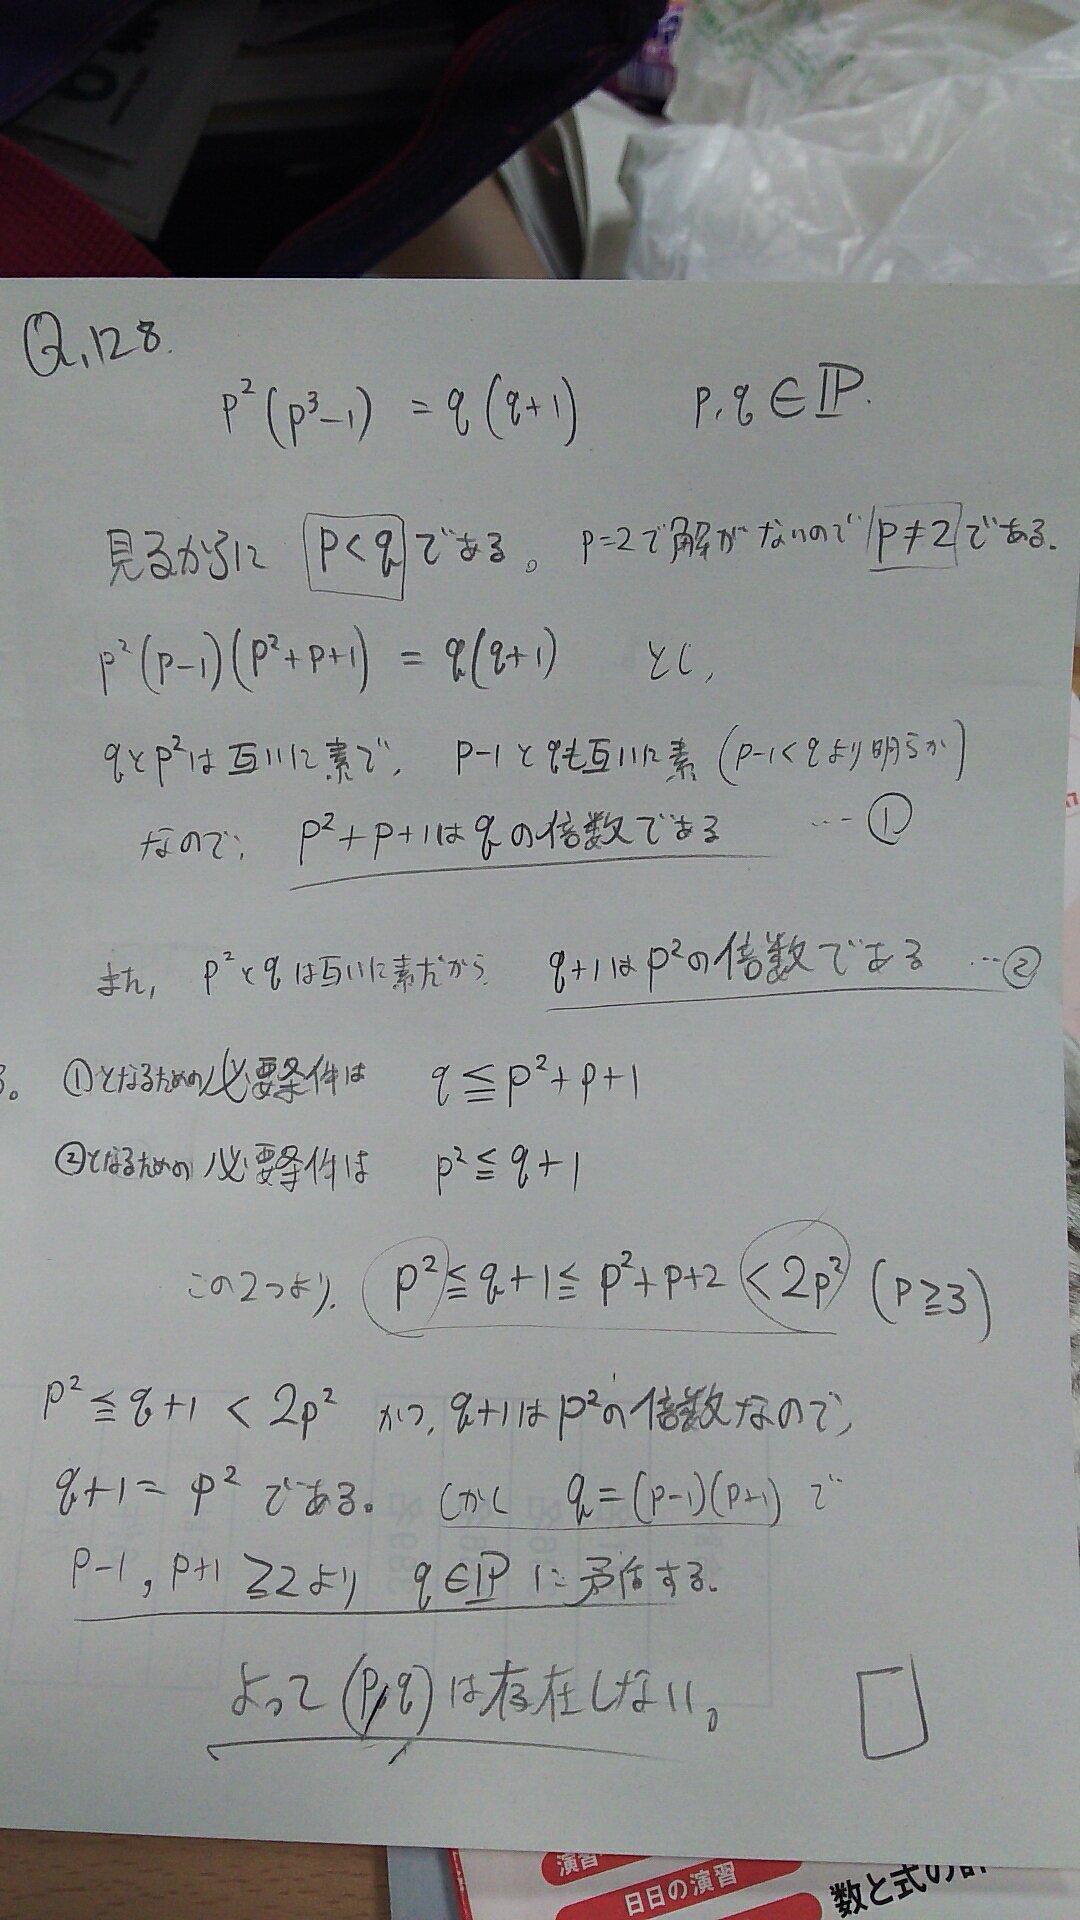 Q.128.
p²(p³-1) = q(q+1) p,q ∈ ℙ.
見るからに p<q である。 p=2で解がないので p≠2 である.
p²(p-1)(p²+p+1) = q(q+1) とし,
qとp²は互いに素で, p-1とqも互いに素 (p-1<qより明らか)
なので, p²+p+1はqの倍数である … ①
また, p²とqは互いに素だから q+1はp²の倍数である … ②
る。 ①となるための必要条件は q≦p²+p+1
②となるための必要条件は p²≦q+1
この2つより, p²≦q+1≦p²+p+2<2p² (p≧3)
p²≦q+1<2p² かつ, q+1はp²の倍数なので,
q+1=p² である。 しかし q=(p-1)(p+1) で
p-1, p+1 ≧2より q∈ℙ に矛盾する.
よって (p,q) は存在しない。
演習
日日の演習
数と式の計